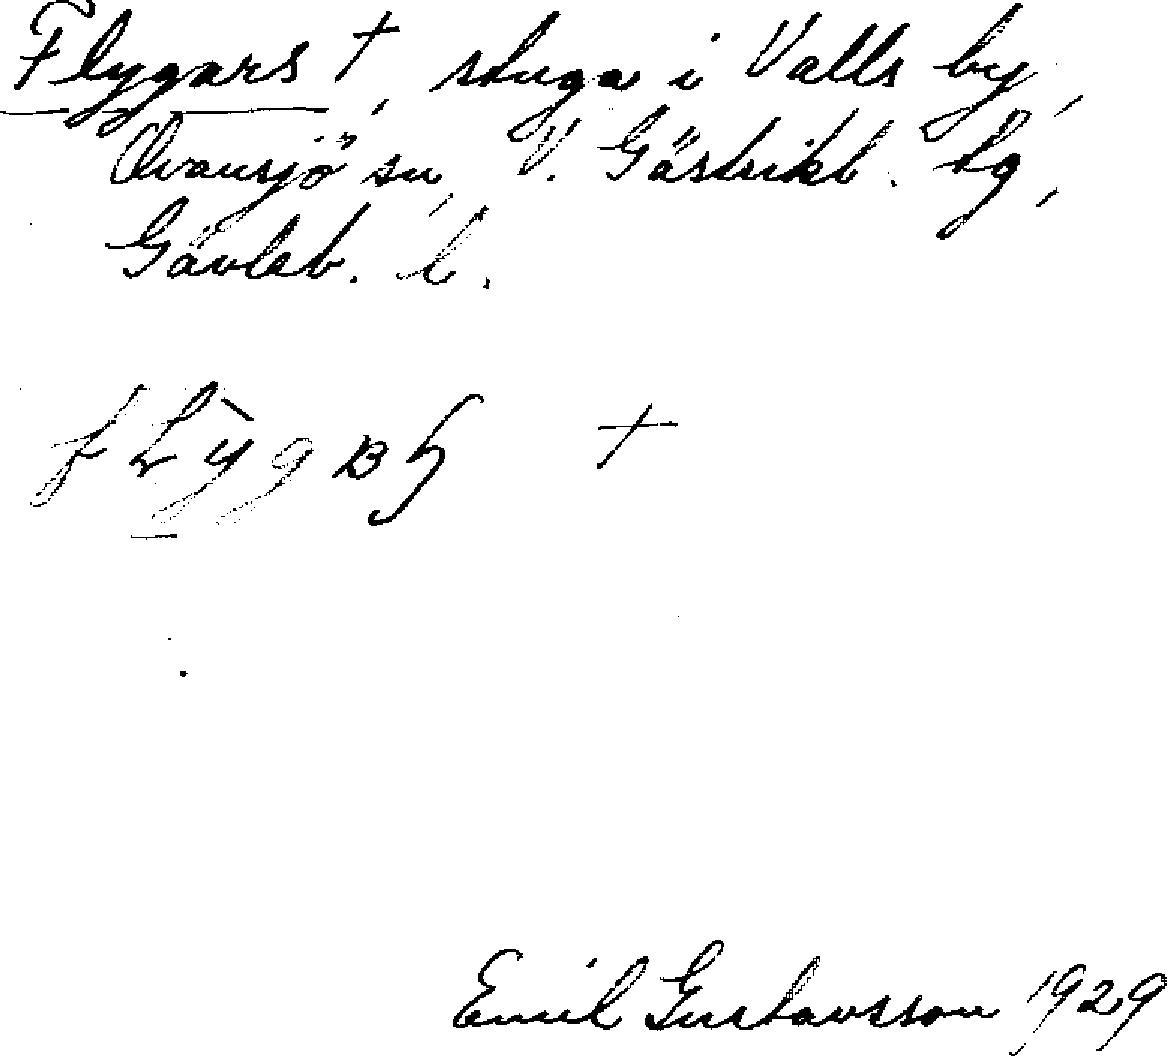 Flygars †, stuga i Valls by,
Ovansjö sn, V. Gästrikl. tg,
Gävleb. l.
+
Emil Gustavsson 1929